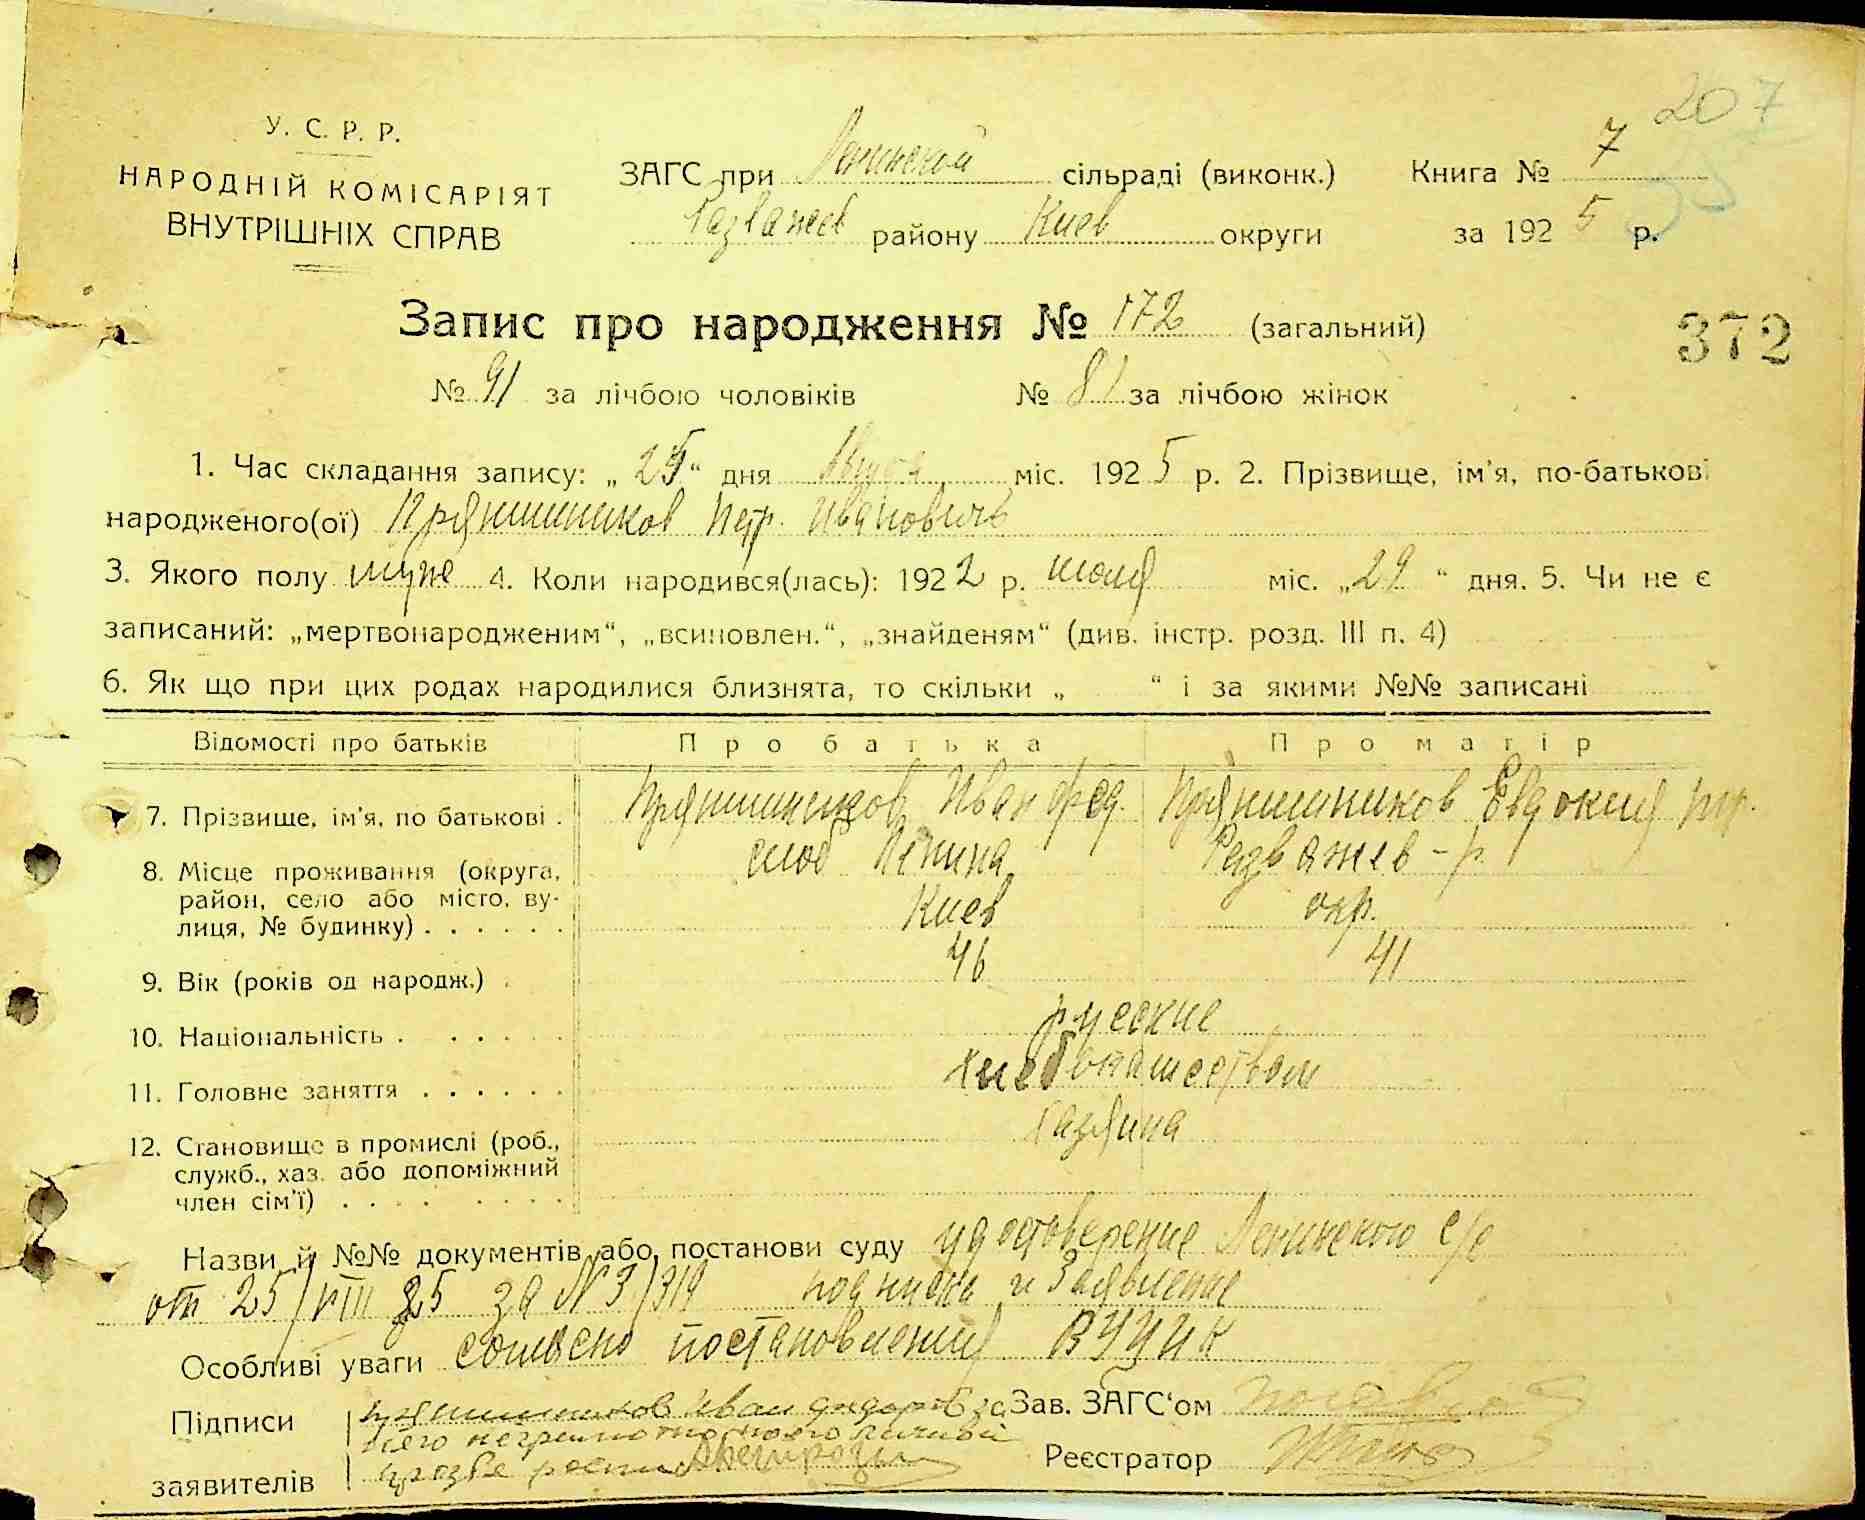 207
У. С. Р. Р.
НАРОДНІЙ КОМІСАРІЯТ
ВНУТРІШНІХ СПРАВ
ЗАГС при Ленинской сільраді (виконк.) Книга № 7
Розважев району Киев округи за 192 5 р.
Запис про народження № 172 (загальний)
372
№ 91 за лічбою чоловіків № 81 за лічбою жінок
1. Час складання запису: „ 25 “ дня Августа міс. 192 5 р. 2. Прізвище, ім'я, по-батькові
народженого(ої) Прянишников Петр. Ивановичь
3. Якого полу муже 4. Коли народився(лась): 192 2 р. июля міс. „ 29 “ дня. 5. Чи не є
записаний: „мертвонародженим“, „всиновлен.“, „знайденям“ (див. інстр. розд. III п. 4)
6. Як що при цих родах народилися близнята, то скільки „ “ і за якими №№ записані
Відомості про батьків Про батька Про матір
7. Прізвище, ім'я, по батькові . Прянишников Иван Фед. Прянишников Евдокия
8. Місце проживання (округа, слоб Ленина Розважев - р.
район, село або місто, ву-
лиця, № будинку) . . . . . . Киев окр.
9. Вік (років од народж.) . 46 41
10. Національність . . . . . русские
11. Головне заняття . . . . . . хлебопашеством
12. Становище в промислі (роб., хазяина
служб., хаз. або допоміжний
член сім'ї) . . . . . . . .
Назви й №№ документів або постанови суду удостоверение Ленинского с/с
от 25/VIII 25 за N 3/319 подписка и Заявление
Особливі уваги согласно постановления ВУЦИК
Підписи Прянишников Иван за Зав. ЗАГС'ом
его неграмотного личной
заявителів прозбе Реєстратор